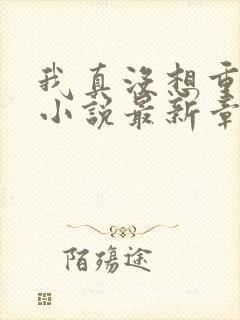 我真没想重
小说最新章
陌殇途